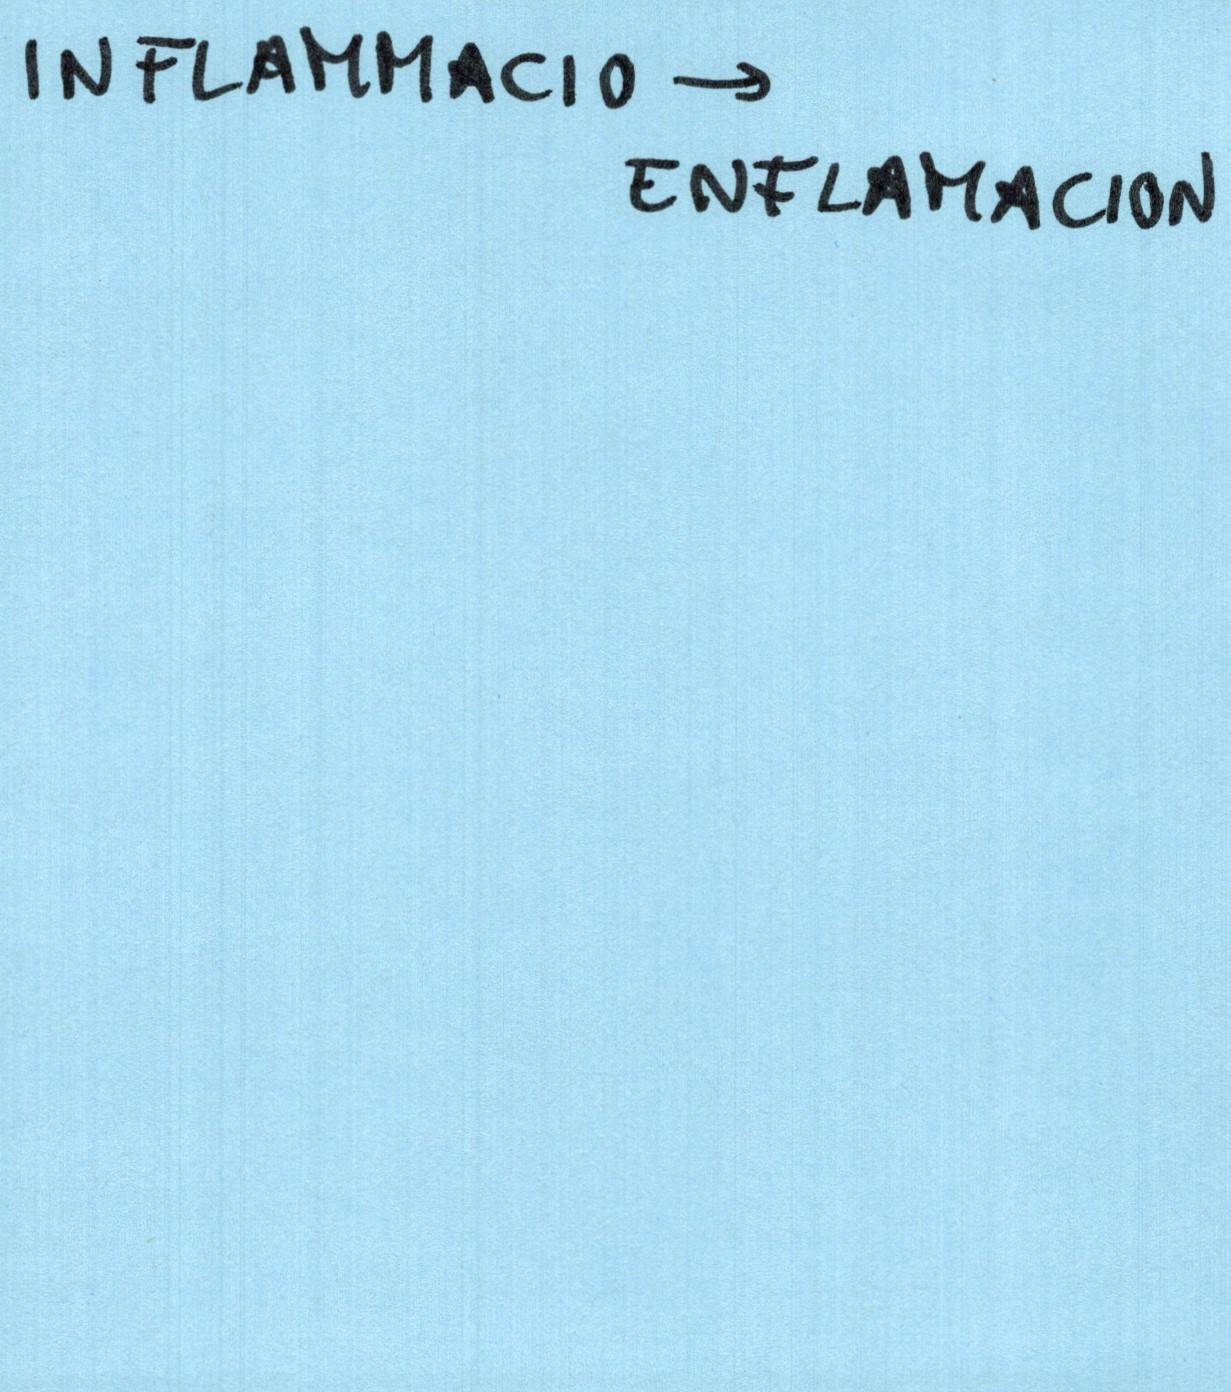 INFLAMMACIO →
ENFLAMACION